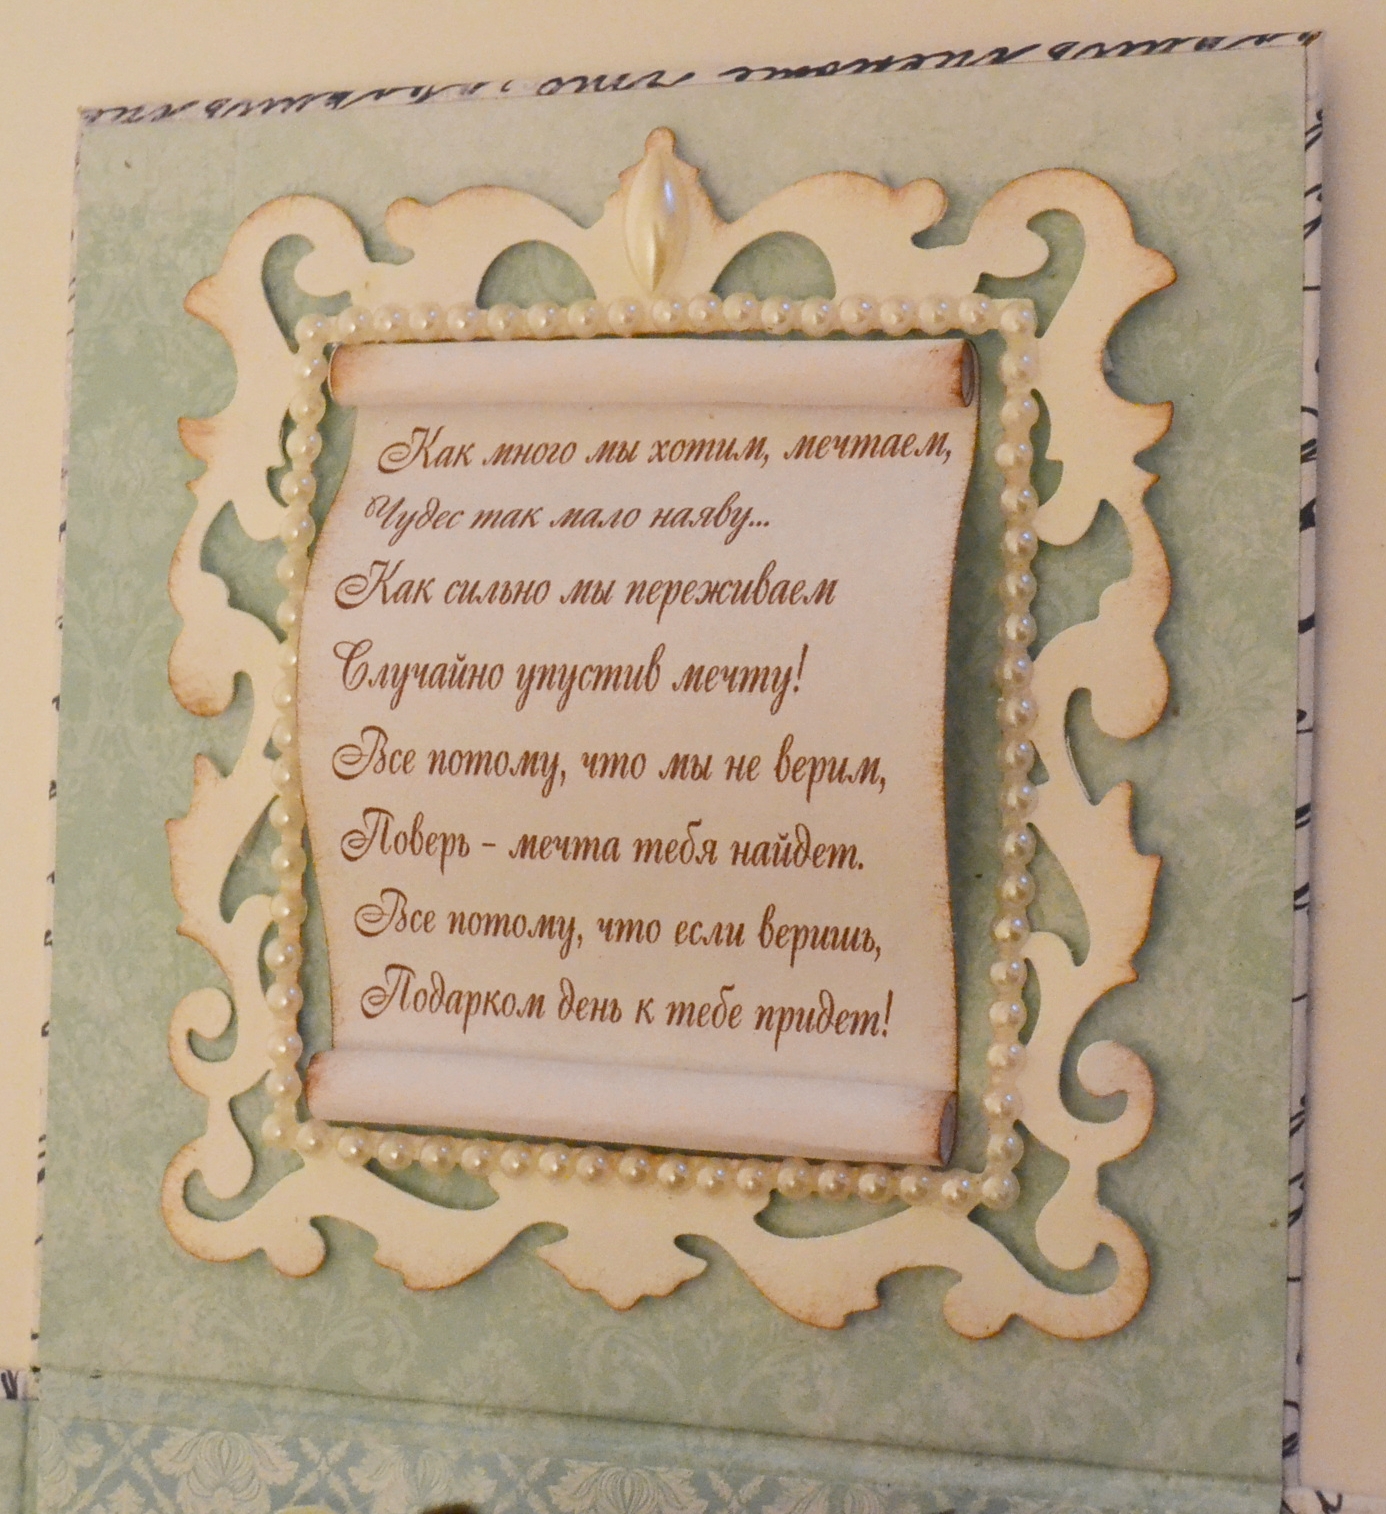 Как много мы хотим, мечтаем,
Чудес так мало наяву...
Как сильно мы переживаем
Случайно упустив мечту!
Все потому, что мы не верим,
Поверь - мечта тебя найдет.
Все потому, что если веришь,
Подарком день к тебе придет!